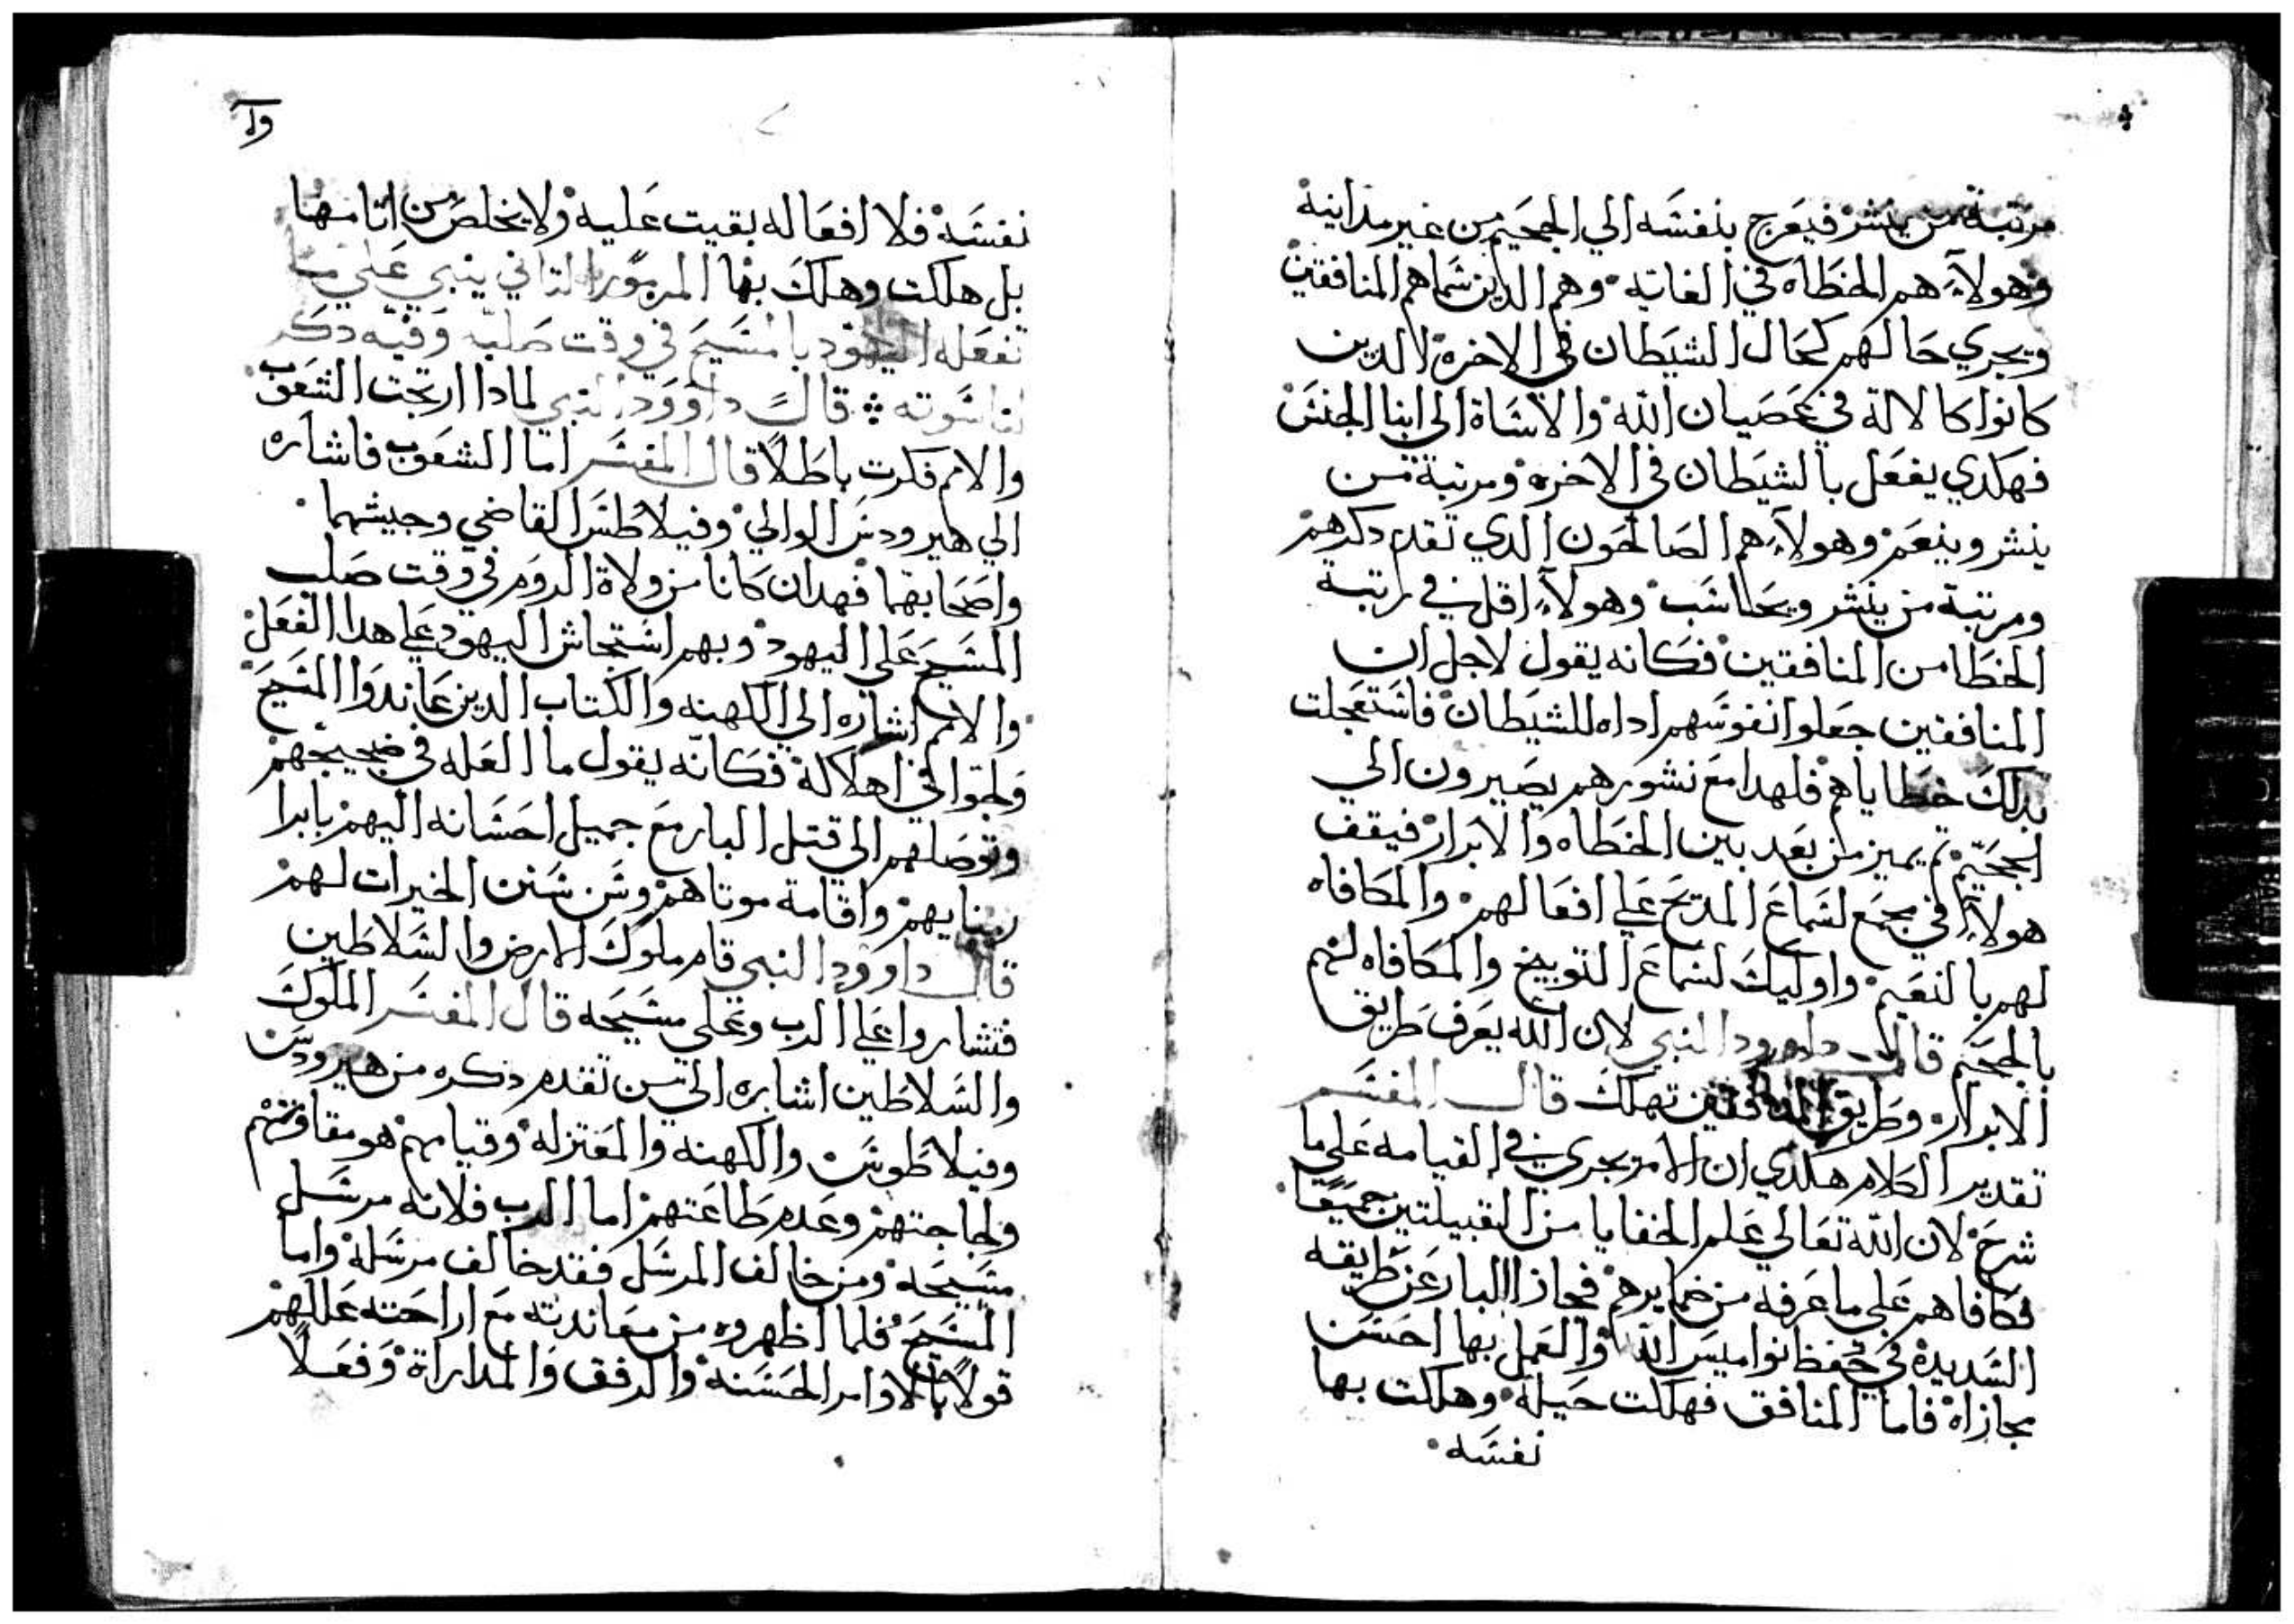 مرتبة من ينشر فيعرج بنفسه الي الجحيم من غير مداينة
وهولاء هم الخطاه في الغايه وهم الدين سماهم المنافقين
ويجري حالهم كحال الشيطان في الاخرة لالدين
كانوا كالالة في عصيان الله والاساة الي ابنا الجنس
فهكدي يفعل بالشيطان في الاخرة ومرتبة من
ينشر وينعم وهولاء هم الصالحون الدي تقدم دكرهم
ومرتبة من ينشر ويحاسب وهولاء اقل في مرتبة
الخطا من المنافقين فكانه يقول لاجل ان
المنافقين جعلوا نفوسهم اداه للشيطان فاستعجلت
بدلك خطاياهم فلهدا مع نشورهم يصيرون الي
الجحيم تم يميز من بعد بين الخطاه والابرار فيقف
هولاء في مجمع لسماع المديح علي افعالهم والمكافاه
لهم بالنعيم واوليك لسماع التوبيخ والمكافاه لهم
بالجحيم قال داوود النبي لان الله يعرف طريق
الابرار وطريق المنافقين تهلك قال المفسر
تقدير الكلام هكدي ان الامر يجري في القيامه علي ما
شرح لان الله تعالي علم الخفايا من القبيلتين جميعا
فكافاهم علي ما عرفه من ضمايرهم فجازا البار عن طريقه
السديدة في حفظ نواميس الله والعمل بها احسن
مجازاة فاما المنافق فهلكت حيله وهلكت بها
نفسه
وا
نفسه فلا افعاله بقيت عليه ولا يخلص من اتامها
بل هلكت وهلك بها المزمور التاني ينبي علي ما
تفعله اليهود بالمسيح في وقت صلبه وفيه دكر
لناسوته قال داوود النبي لمادا ارتجت الشعوب
والامم فكرت باطلا قال المفسر اما الشعوب فاشاره
الي هيرودس الوالي وفيلاطس القاضي وجيشهما
واصحابهما فهدان كانا من ولاة الروم في وقت صلب
المسيح علي اليهود وبهم استجاش اليهود علي هدا الفعل
والامم اشاره الي الكهنه والكتاب الدين عاندوا المسيح
ولجوا في اهلاكه فكانه يقول ما العله في ضجيجهم
وتوصلهم الي قتل البار مع جميل احسانه اليهم بابرا
زمنايهم واقامة موتاهم وسن سنن الخيرات لهم
قال داوود النبي قام ملوك الارض والسلاطين
فتشاروا علي الرب وعلي مسيحه قال المفسر الملوك
والسلاطين اشاره الي من تقدم دكره من هيرودس
وفيلاطوس والكهنه والمعتزله وقيامهم هو مقاومتهم
ولجاجتهم وعدم طاعتهم اما الرب فلانه مرسل
مسيحه ومن خالف المرسل فقد خالف مرسله واما
المسيح فلما اظهروه من معاندته مع ازاحته عللهم
قولا بالاوامر الحسنه والرفق والمداراة وفعلا